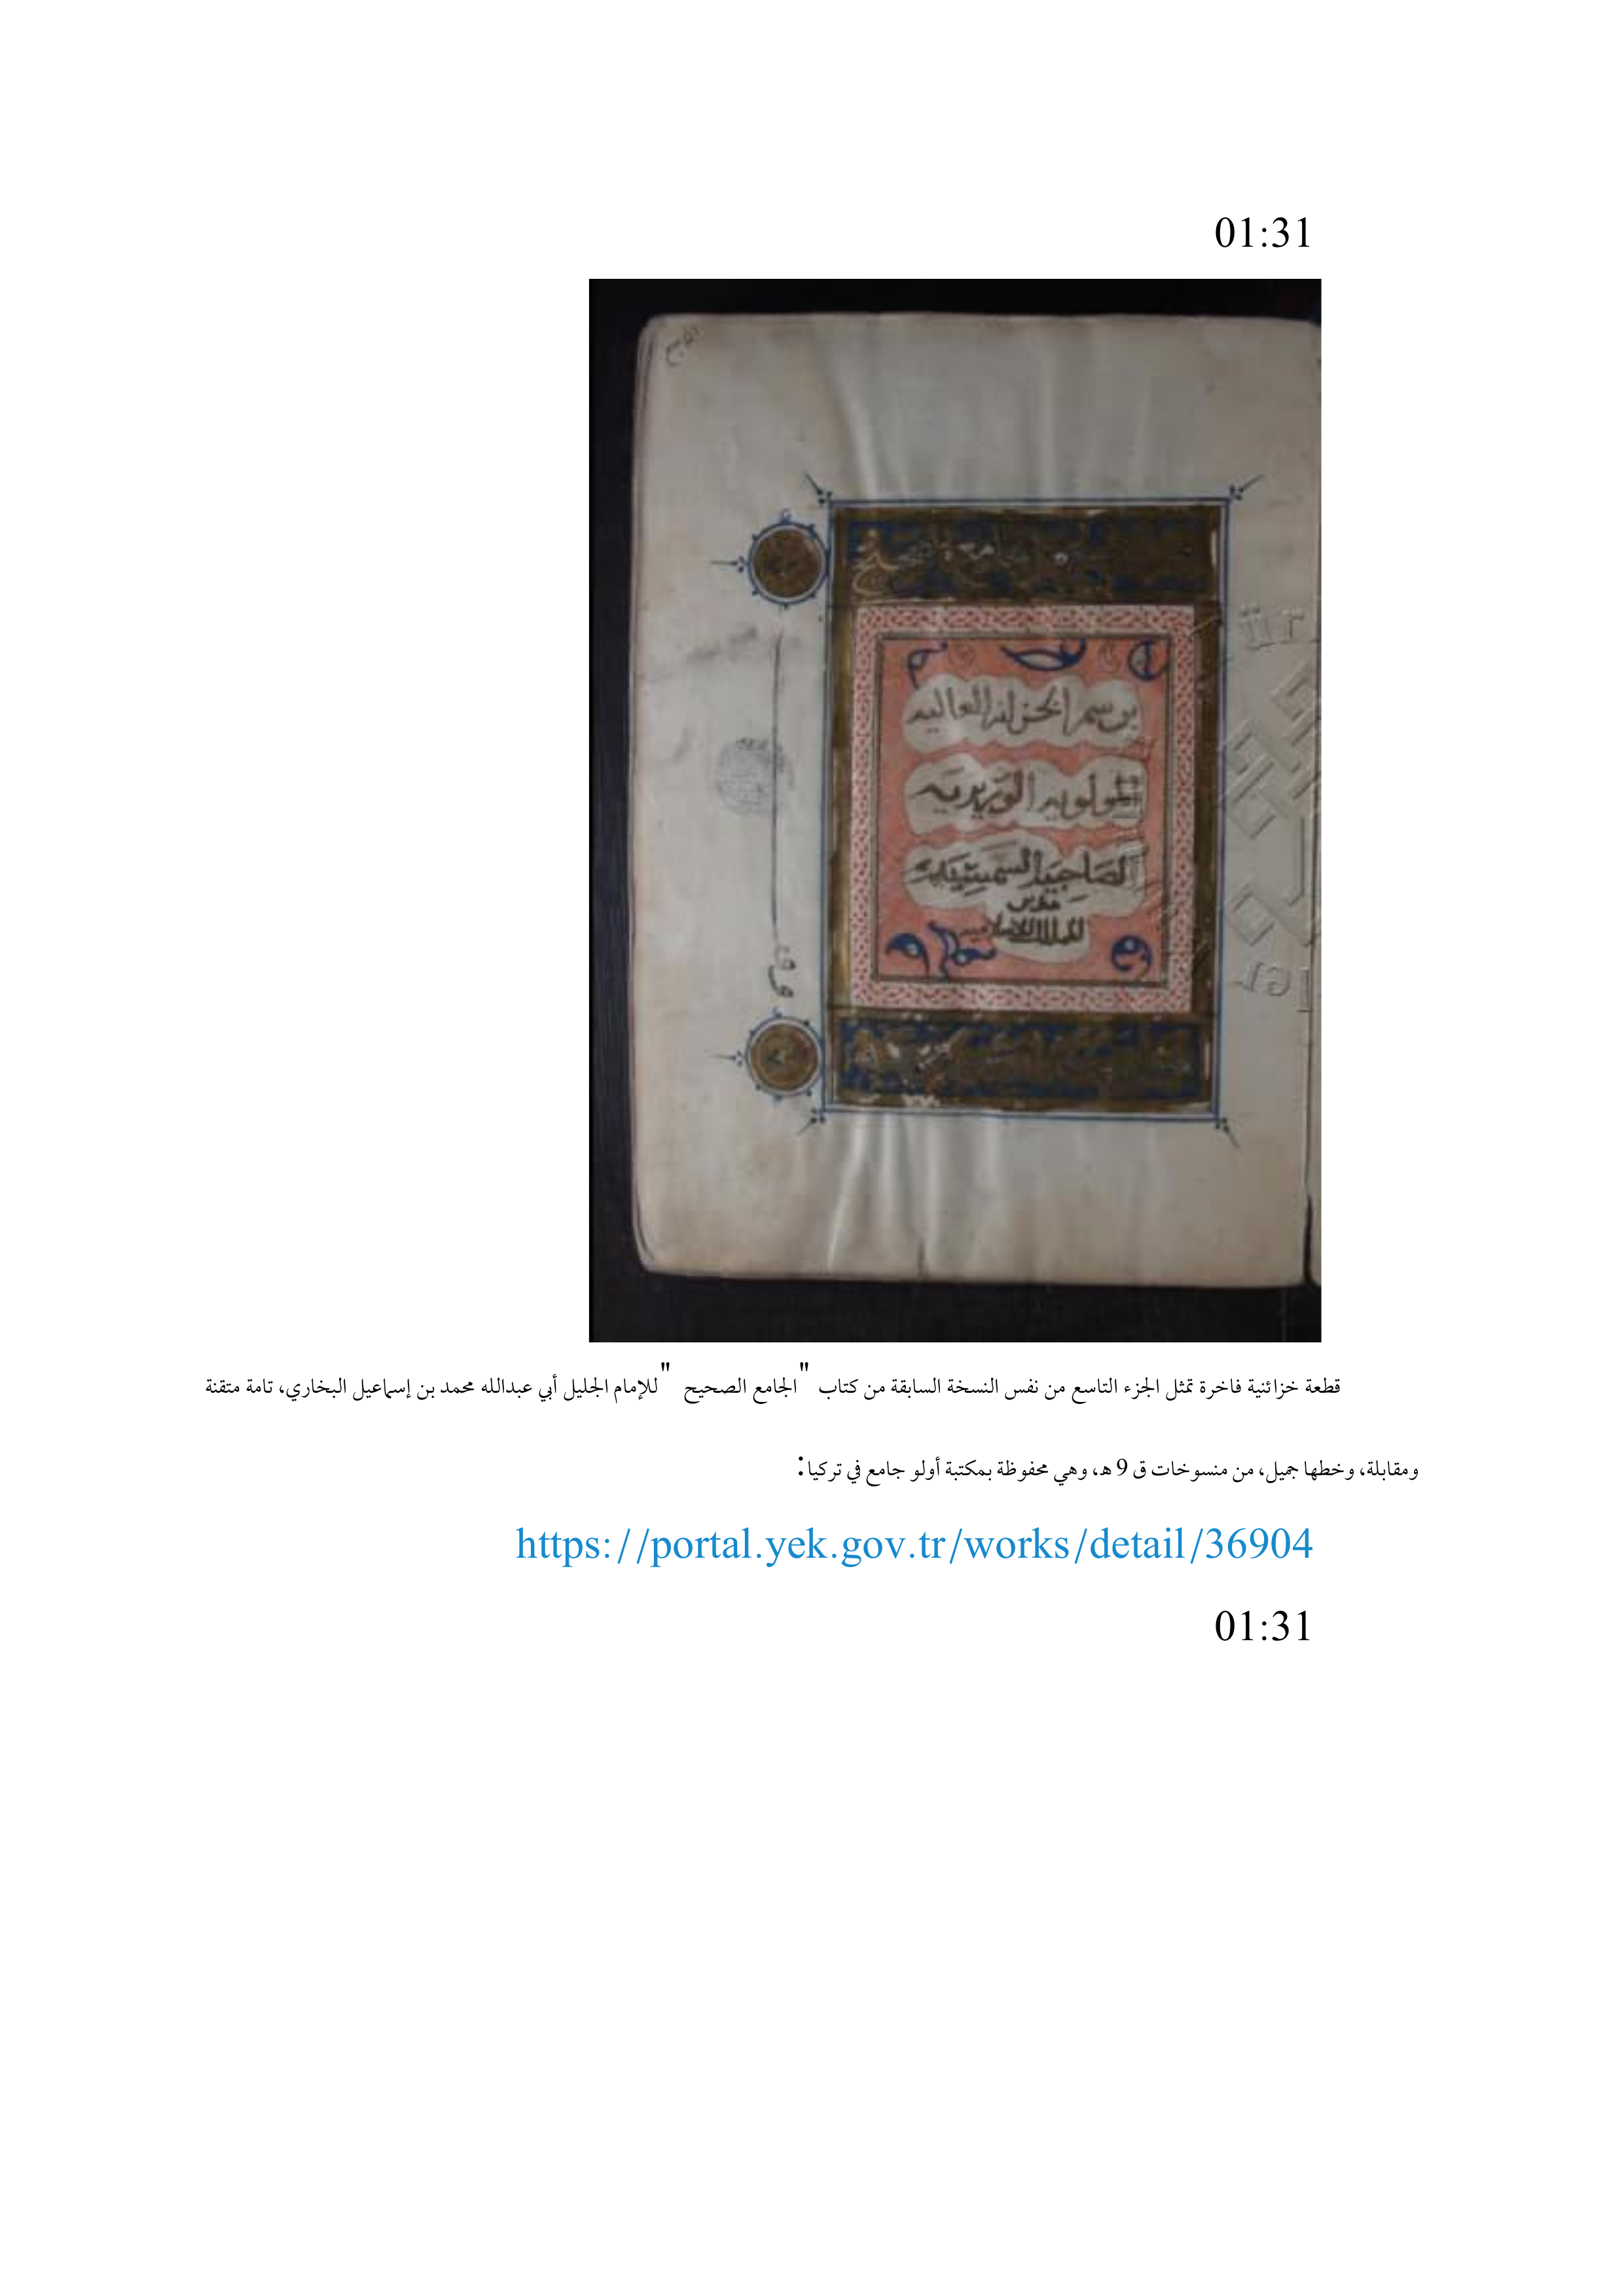 01:31
برسم الخزانة العالية
المولوية الوزيرية
الصاحبية الشمسية
وقف
قطعة خزائنية فاخرة تمثل الجزء التاسع من نفس النسخة السابقة من كتاب "الجامع الصحيح" للإمام الجليل أبي عبدالله محمد بن إسماعيل البخاري، تامة متقنة
ومقابلة، وخطها جميل، من منسوخات ق 9 هـ، وهي محفوظة بمكتبة أولو جامع في تركيا:
https://portal.yek.gov.tr/works/detail/36904
01:31